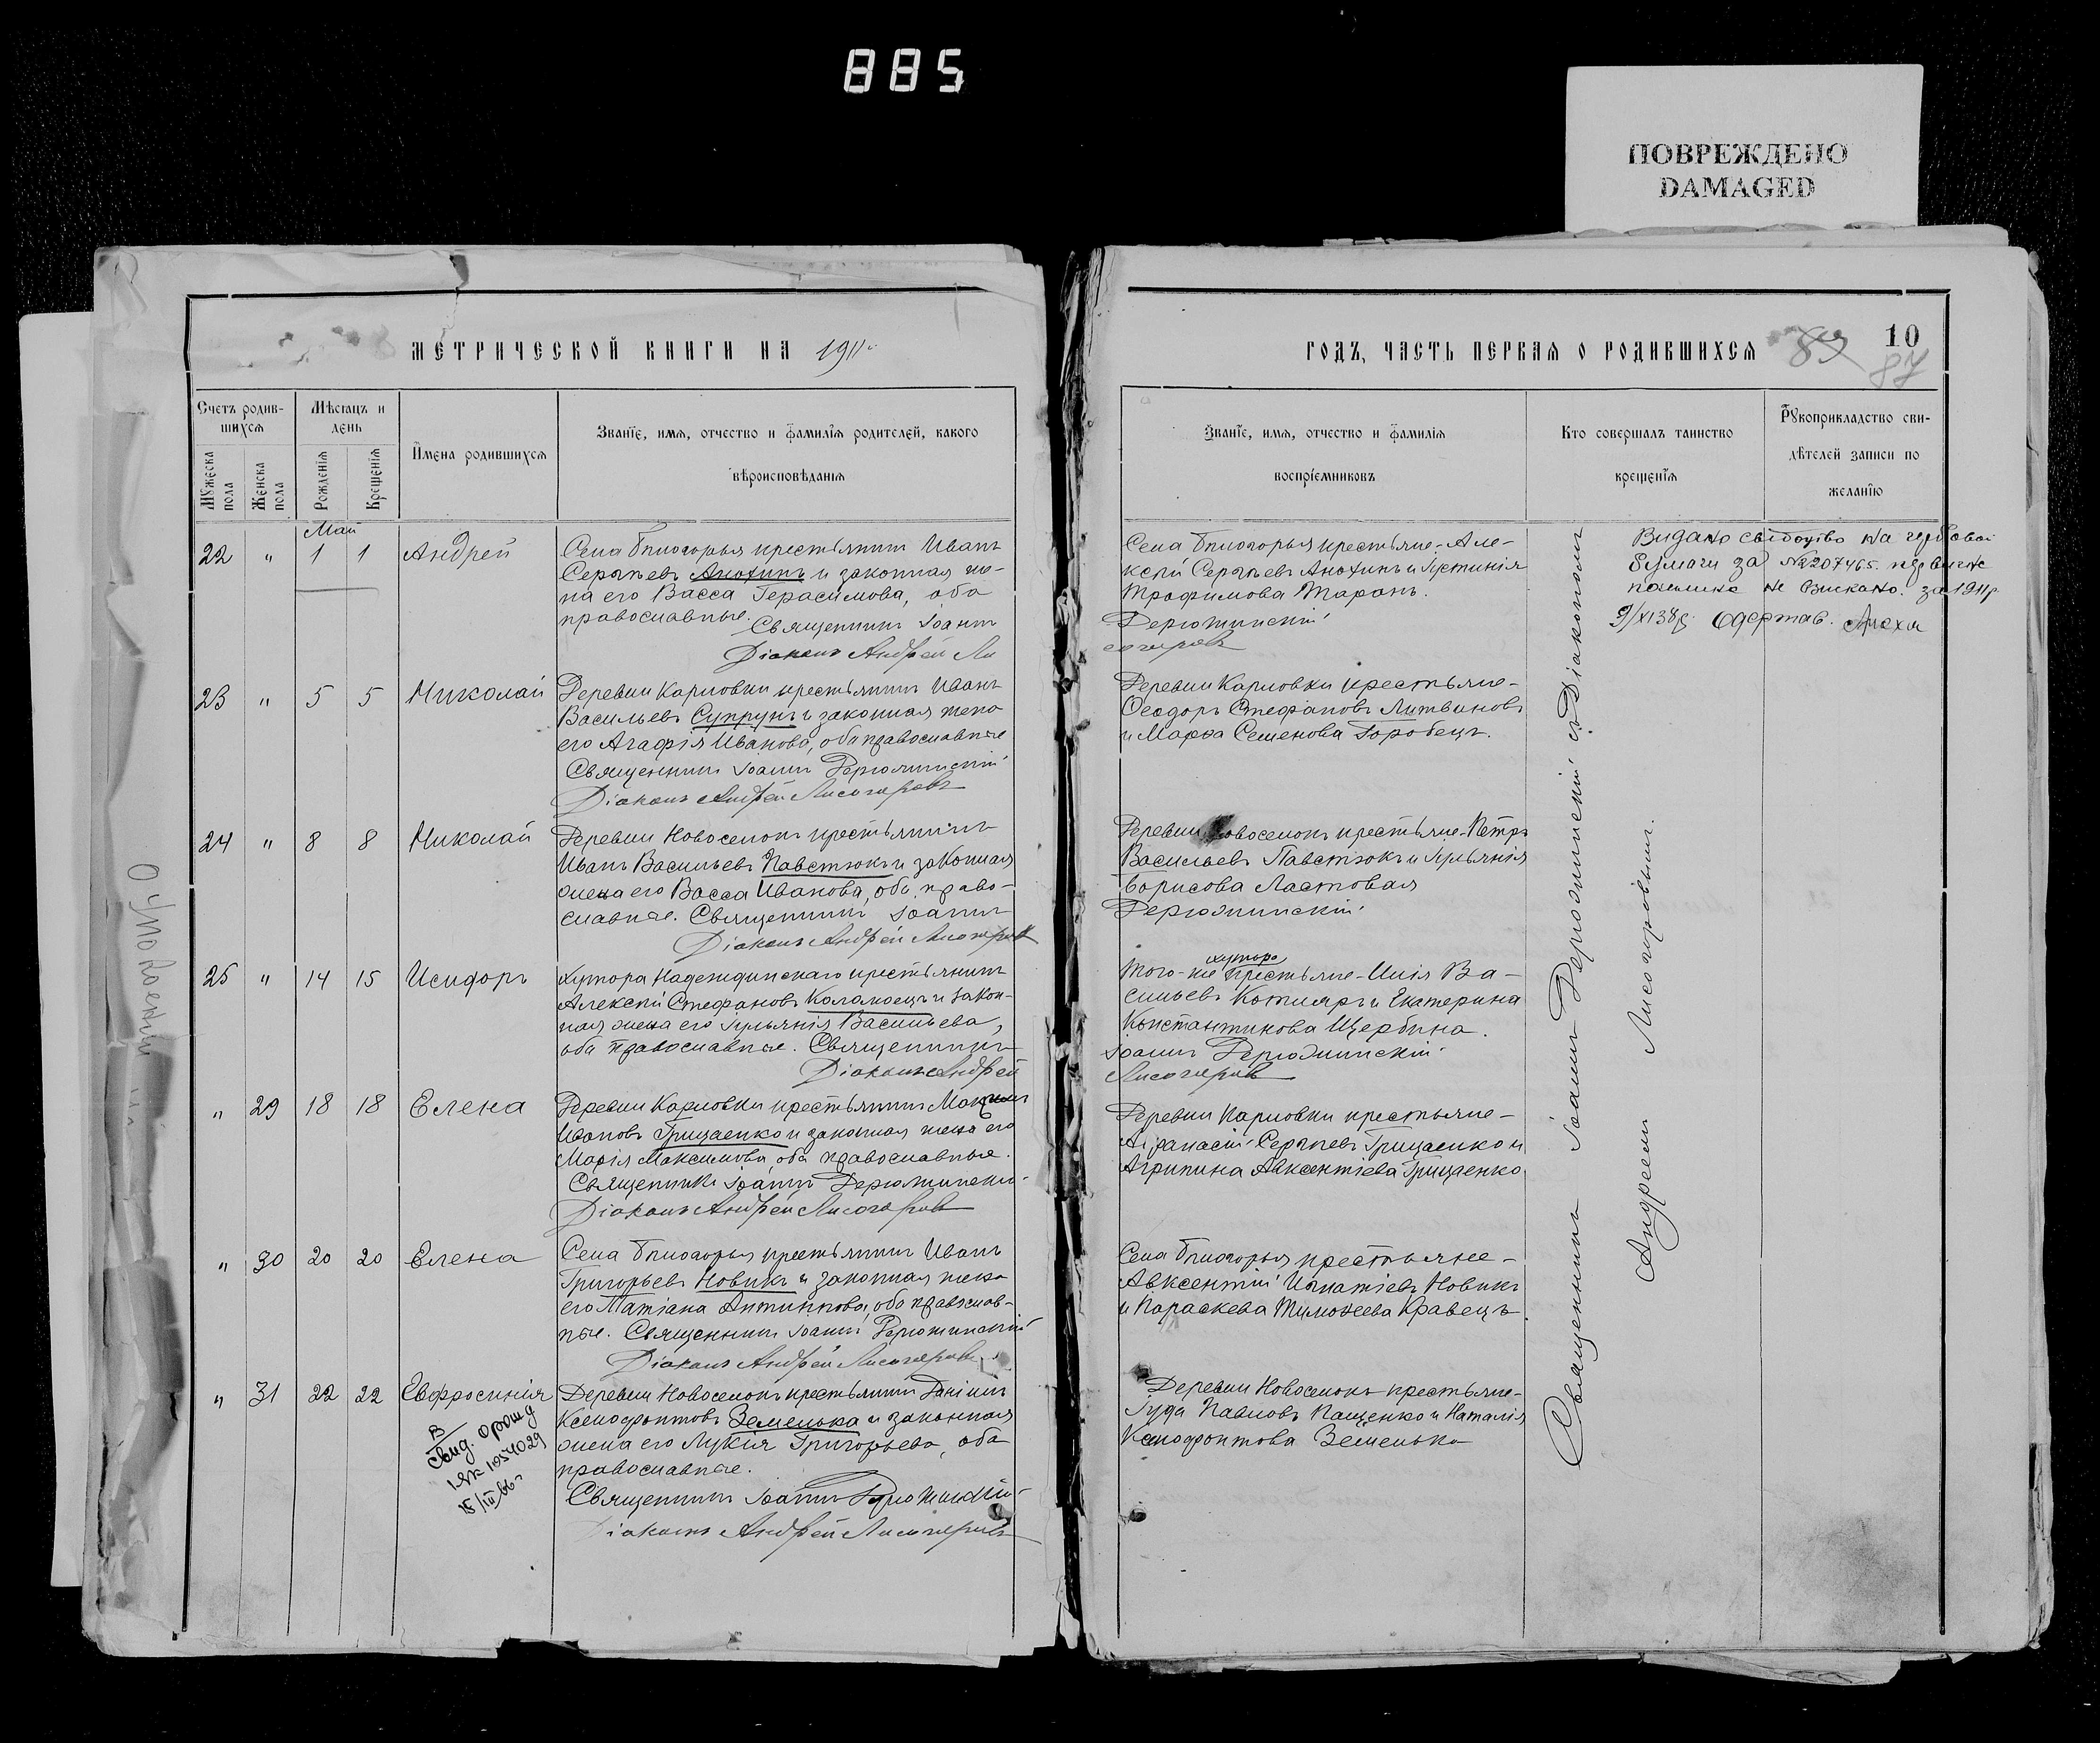 885
ПОВРЕЖДЕНО
DAMAGED
МЕТРИЧЕСКОЙ КНИГИ НА 1911
Счетъ родив-
шихся
Мѣсяцъ и
день
Имена родившихся
Званіе, имя, отчество и фамилія родителей, какого
вѣроисповѣданія
Мужеска
пола
Женска
пола
Рожденія
Крещенія
Май
22 " 1 1 Андрей
Села крестьянинъ Иванъ
Сергѣевъ Анохинъ и законная же-
на его Васса Герасимова, оба
православные.
Священникъ Іоаннъ
Діаконъ Андрей Ли
23 " 5 5 Николай
Деревни Карловки крестьянинъ Иванъ
Васильевъ Супрунъ и законная жена
его Агафія Иванова, оба православные
Священникъ Іоаннъ Дерюжинскій
Діаконъ Андрей Лисогоровъ
24 " 8 8 Николай
Деревни Новоселокъ крестьянинъ
Иванъ Васильевъ Павстюкъ и законная
жена его Васса Иванова, оба право-
славные. Священникъ Іоаннъ
Діаконъ Андрей Лисогоровъ
25 " 14 15 Исидоръ
Хутора Надеждинскаго крестьянинъ
Алексѣй Стефановъ Коламоецъ и закон-
ная жена его Іуліанія Васильева,
оба православные. Священникъ
Діаконъ Андрей
" 29 18 18 Елена
Деревни Карловки крестьянинъ
Ивановъ Грицаенко и законная жена его
Марія Максимова, оба православные.
Священникъ Іоаннъ Дерюжинскій
Діаконъ Андрей Лисогоровъ
" 30 20 20 Елена
Села крестьянинъ Иванъ
Григорьевъ Новикъ и законная жена
его Татіана Антиппова, оба православ-
ные. Священникъ Іоаннъ Дерюжинскій
Діаконъ Андрей Лисогоровъ
" 31 22 22 Евфросинія
Деревни Новоселокъ крестьянинъ Даніилъ
Ксенофонтовъ Земелька и законная
жена его Лукія Григорьева, оба
православные.
Священникъ Іоаннъ Дерюжинскій
Діаконъ Андрей Лисогоровъ
В
Свид. о рожд
1054029
15/III 66г
ГОДЪ, ЧАСТЬ ПЕРВАЯ О РОДИВШИХСЯ
89
10
87
Званіе, имя, отчество и фамилія
воспріемниковъ
Кто совершалъ таинство
крещенія
Рукоприкладство сви-
дѣтелей записи по
желанію
Села крестьяне: Але-
ксѣй Сергѣевъ Анохинъ и Іустинія
Трофимова Таранъ.
Дерюжинскій
согоровъ
Деревни Карловки крестьяне-
Ѳеодоръ Стефановъ Литвиновъ
и Марѳа Семенова Горобецъ.
Деревни Новоселокъ крестьяне-Петръ
Васильевъ Павстюкъ и Іуліанія
Борисова Ластовая
Дерюжинскій
хутора
Того-же крестьяне-Илія Ва-
сильевъ Котляръ и Екатерина
Константинова Щербина.
Іоаннъ Дерюжинскій
Лисогоровъ
Деревни Карловки крестьяне-
Аѳанасій Сергѣевъ Грицаенко и
Агрипина Авксентіева Грицаенко
Села крестьяне-
Авксентій Игнатіевъ Новикъ
и Параскева Тимоѳеева Кравецъ
Деревни Новоселокъ крестьяне-
Іуда Павловъ Пащенко и Наталія
Ксенофонтова Земелька
Священникъ Іоаннъ Дерюжинскій съ Діакономъ
Андреемъ Лисогоровымъ.
Видано свідоцтво на гербовой
бумаги за №207465.
не взискано. за 1911р
9/XI 38р. Одержав.